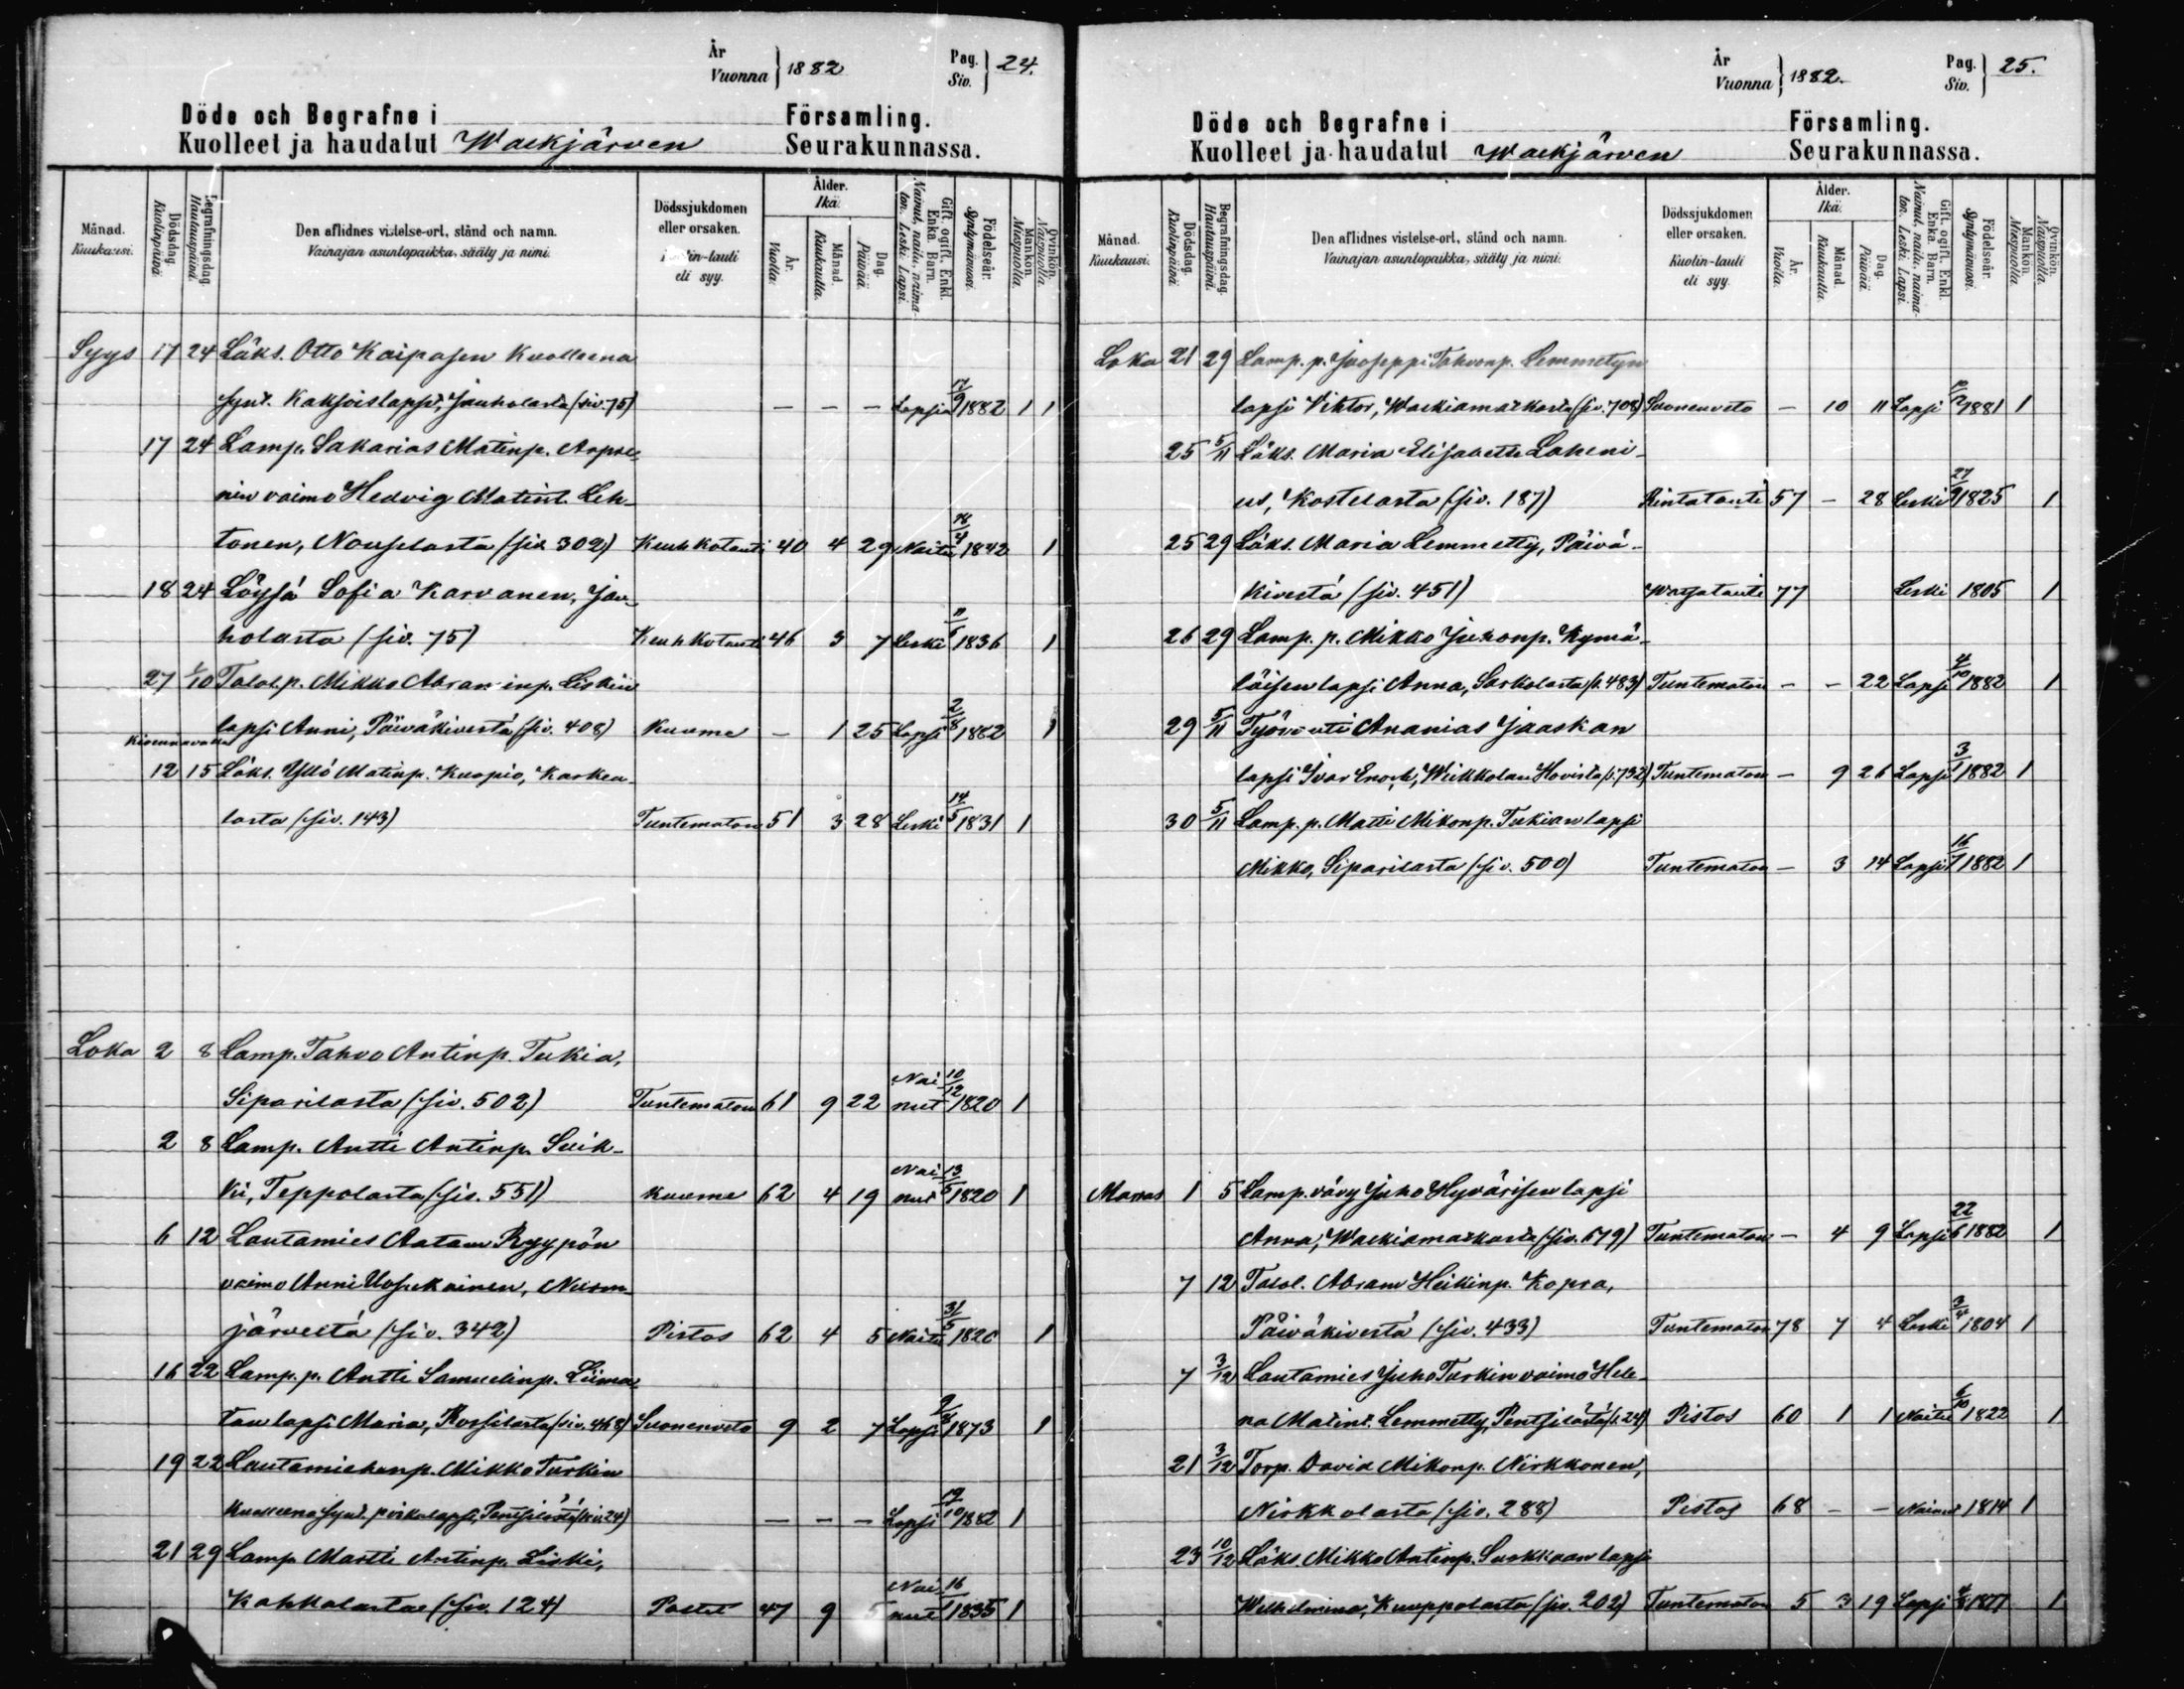 År
Vuonna } 1882
Pag.
Siv. } 24.
Döde och Begrafne i Församling.
Kuolleet ja haudatut Walkjärven Seurakunnassa.
Månad. Kuukausi.
Dödsdag. Kuolinpäivä.
Begrafningsdag. Hautauspäivä.
Den aflidnes vistelse-ort, stånd och namn.
Vainajan asuntopaikka, sääty ja nimi.
Dödssjukdomen eller orsaken.
eli syy.
Ålder. Ikä.
År. Vuotta.
Månad. Kuukautta.
Dag. Päivää.
Gift, ogift. Enkl. Enka. Barn.
Nainut, naitu, naimaton. Leski. Lapsi.
Födelseår. Syntymävuosi.
Mankön. Miespuolia.
Qvinkön. Naispuolia.
Syys 17 24 Läks. Otto Kaipasen kuolleena
synt. Kaksoislapset, Jauholasta (siv. 75) — — — Lapsia 17/9 1882 1 1
17 24 Lamp. Sakarias Matinp. Arpo-
nin vaimo Hedvig Matint. Leh-
tonen, Nousilasta (siv. 302) Keuhkotauti 40 4 29 Naitu 18/4 1842 1
18 24 Löysä Sofia Karvanen, Jau-
holasta (siv. 75) Keuhkotauti 46 3 7 Leski 1836 1
27 1/10 Talol. p. Mikko Abraminp. Liskin
lapsi Anni, Päiväkivestä (siv. 408) Kuume — 1 25 Lapsi 2/8 1882 1
12 15 Läks. Yllö Matinp. Kuopio, Karkea-
lasta (siv. 143) Tuntematon 51 3 28 Leski 14/5 1831 1
Loka 2 8 Lamp. Tahvo Antinp. Tukia,
Siparilasta (siv. 502) Tuntematon 61 9 22 Nainut 10/12 1820 1
2 8 Lamp. Antti Antinp. Suik-
ki, Teppolasta (siv. 551) Kuume 62 4 19 Nainut 13/5 1820 1
6 12 Lautamies Aatam Ryypön
vaimo Anni Uosukainen, Nurm-
järveltä (siv. 342) Pistos 62 4 5 Naitu 31/5 1820 1
16 22 Lamp. p. Antti Samuelinp. Liima-
tan lapsi Maria, Korsilasta (siv. 468) Suonenveto 9 2 7 Lapsi 9/8 1873 1
19 22 Lautamiehenp. Mikko Turkin
kuolleena synt. poikalapsi, Pentsilästä (siv. 24) — — — Lapsi 19/10 1882 1
21 29 Lamp. Martti Antinp. Liski,
Kahkalasta (siv. 124) Poltet 47 9 5 Nainut 16/1 1835 1
År
Vuonna } 1882.
Pag.
Siv. } 25.
Döde och Begrafne i Församling.
Kuolleet ja haudatut Walkjärven Seurakunnassa.
Månad. Kuukausi.
Dödsdag. Kuolinpäivä.
Begrafningsdag. Hautauspäivä.
Den aflidnes vistelse-ort, stånd och namn.
Vainajan asuntopaikka, sääty ja nimi.
Dödssjukdomen eller orsaken.
Kuolin-tauti eli syy.
Ålder. Ikä.
År. Vuotta.
Månad. Kuukautta.
Dag. Päivää.
Gift, ogift. Enkl. Enka. Barn.
Nainut, naitu, naimaton. Leski. Lapsi.
Födelseår. Syntymävuosi.
Mankön. Miespuolia.
Qvinkön. Naispuolia.
Loka 21 29 Lamp. p. Jooseppi Tahvonp. Lemmetyn
lapsi Viktor, Walkiamatkasta (siv. 708) Suonenveto — 10 11 Lapsi 1881 1
25 5/11 Läks. Maria Elisabetta Laheni-
us, Kostelasta (siv. 187) Rintatauti 57 — 28 Leski 27/9 1825 1
25 29 Läks. Maria Lemmetty, Päivä-
kivestä (siv. 451) Watsatauti 77 Leski 1805 1
26 29 Lamp. p. Mikko Juhonp. Kymä-
läisen lapsi Anna, Sarkolasta (s. 483) Tuntematon — — 22 Lapsi 4/10 1882 1
29 5/11 Työvouti Ananias Jaaskan
lapsi Ivar Enock, Weikkolan Hovista (s. 732) Tuntematon — 9 26 Lapsi 3/1 1882 1
30 5/11 Lamp. p. Matti Mikonp. Tukian lapsi
Mikko, Siparilasta (siv. 500) Tuntematon — 3 14 Lapsi 16/7 1882 1
Marras 1 5 Lamp. vävy Juho Hyvärisen lapsi
Anna, Walkiamatkasta (siv. 679) Tuntematon — 4 9 Lapsi 22/6 1882 1
7 12 Talol. Abram Heikinp. Kopra,
Päiväkivestä (siv. 433) Tuntematon 78 7 4 Leski 3/4 1804 1
7 3/12 Lautamies Juho Turkin vaimo Hele-
na Matint. Lemmetty, Pentsilästä (s. 24) Pistos 60 1 1 Naitu 6/10 1822 1
21 3/12 Torp. David Mikonp. Nirkkonen,
Nirkkolasta (siv. 288) Pistos 68 — — Nainut 1814 1
23 10/12 Läks. Mikko Antinp. Surkkaan lapsi
Wilhelmina, Kuuppolasta (siv. 202) Tuntematon 5 3 19 Lapsi 4/8 1877 1